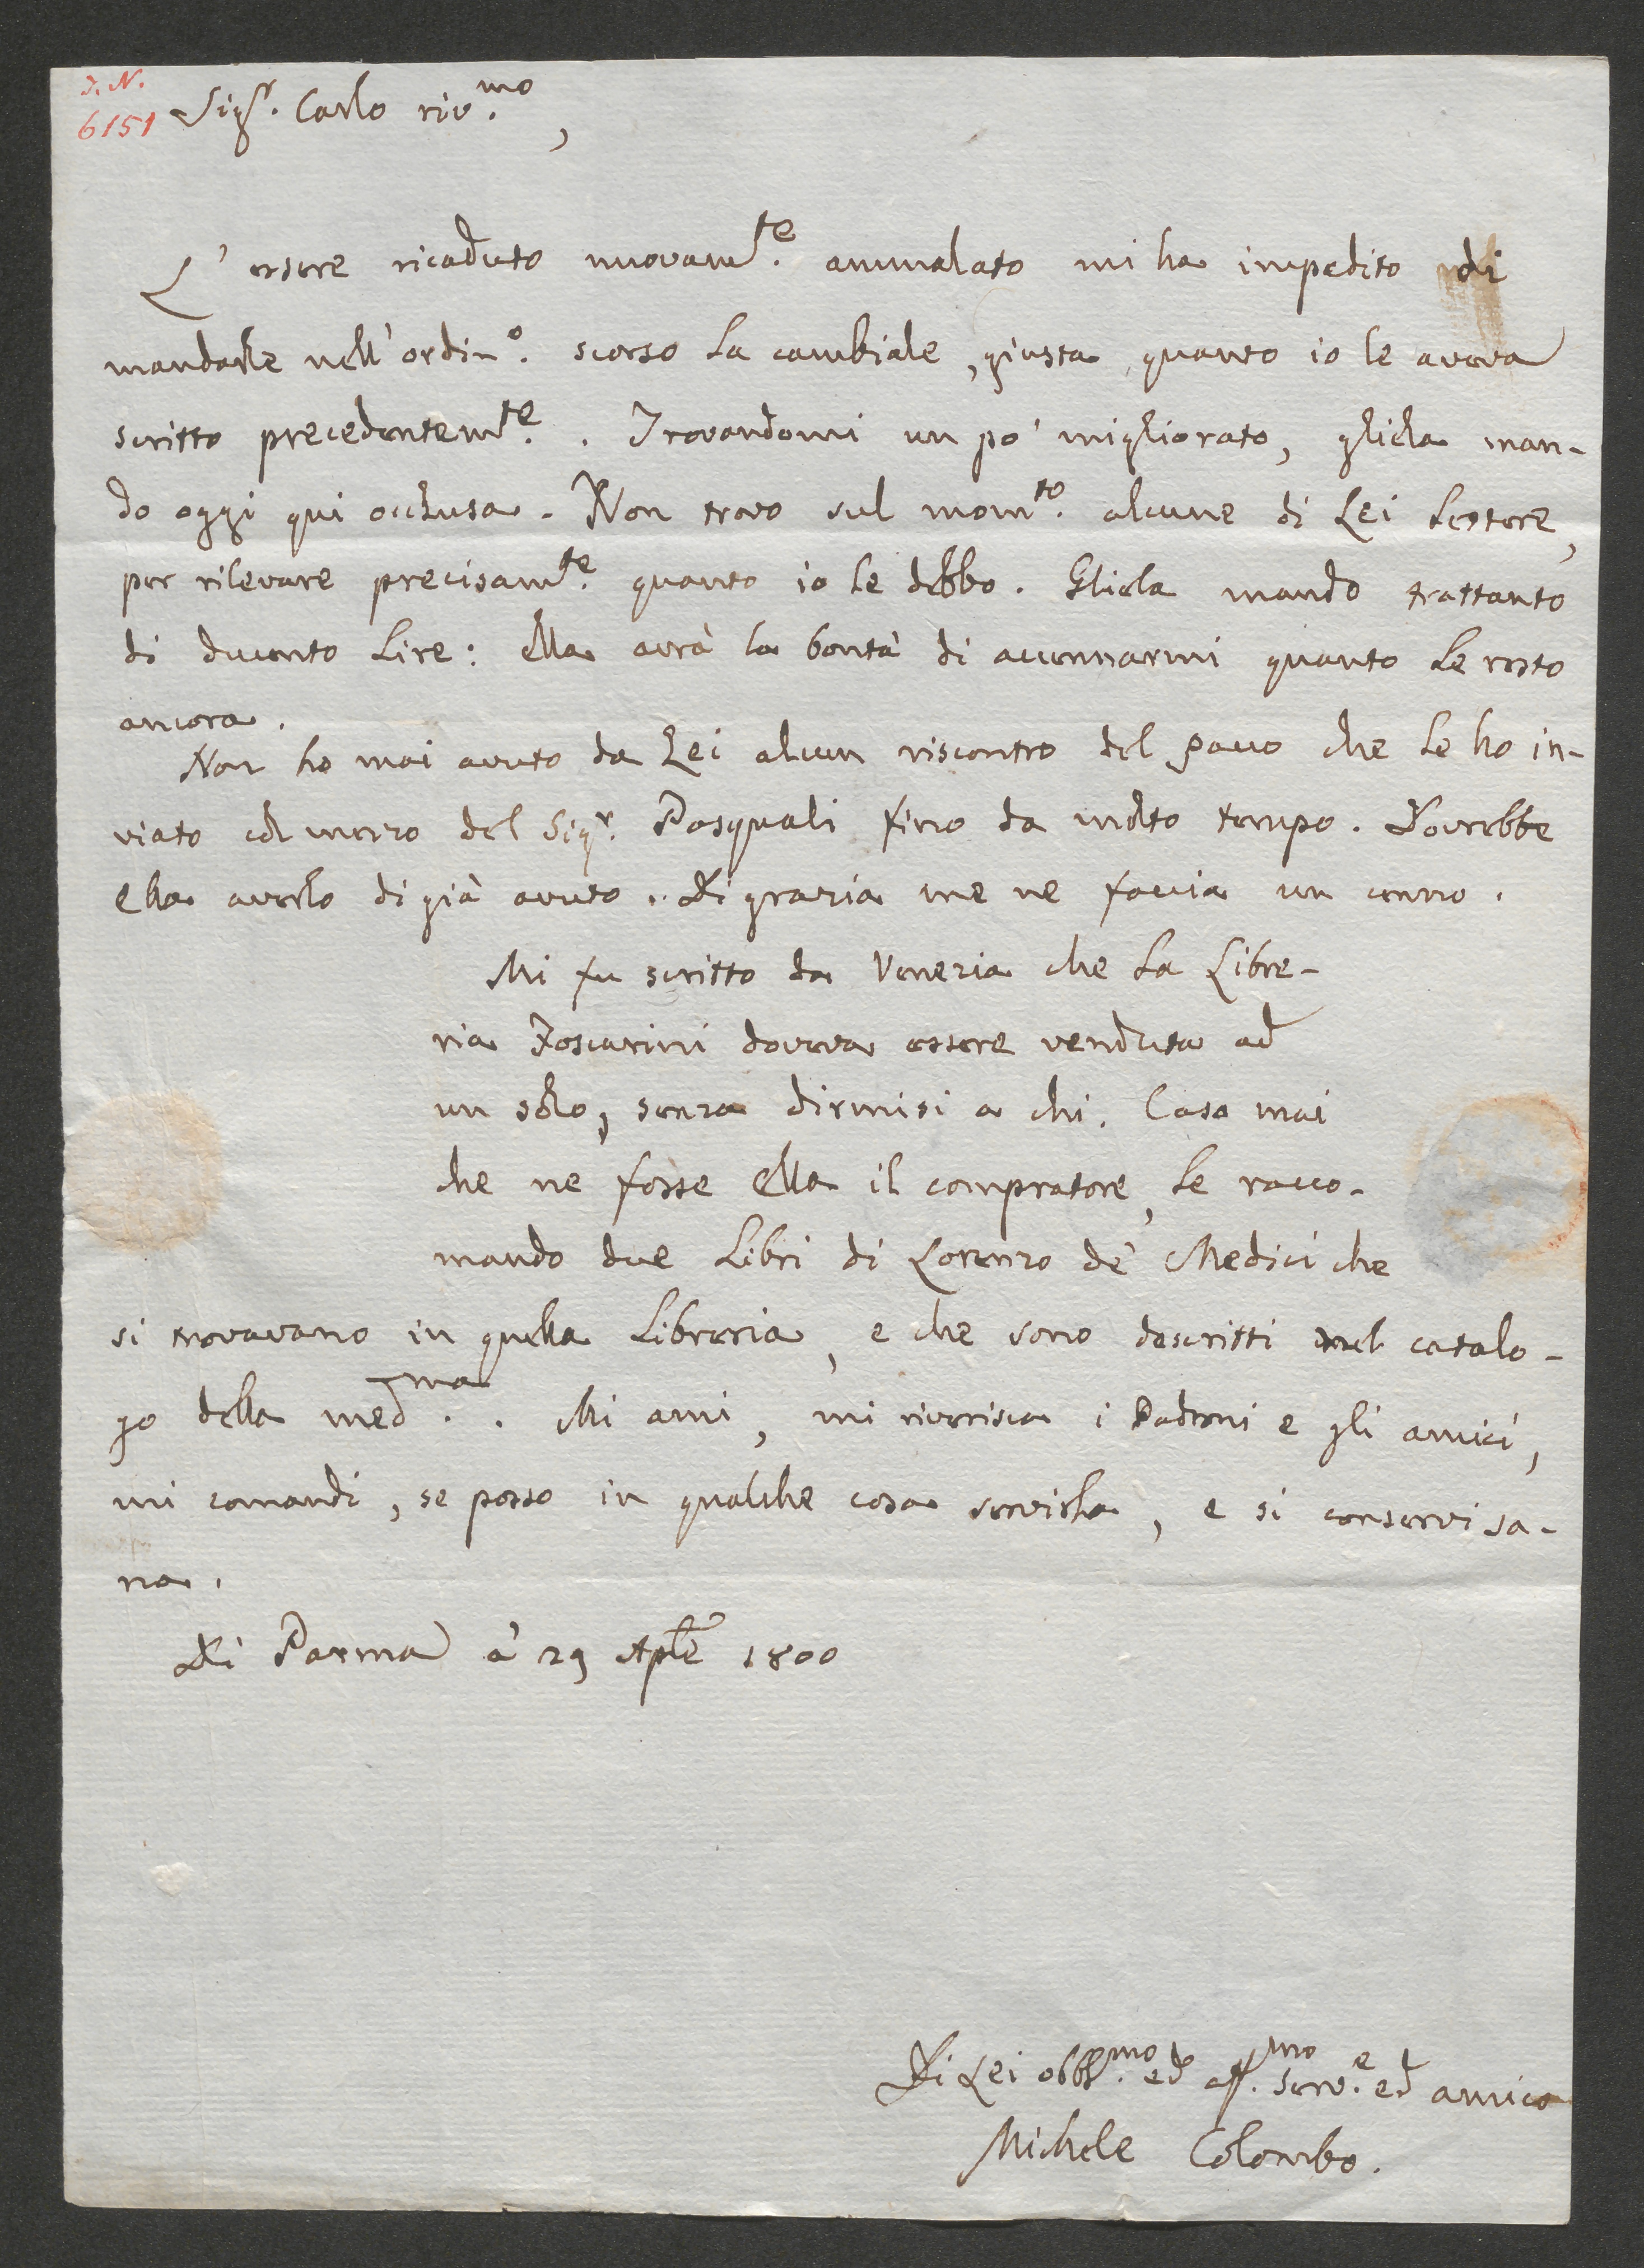 J. N.
6151
Sigr. Carlo riv.mo,
L'essere ricaduto nuovamte. ammalato mi ha impedito di
mandarle nell'ordin.o scorso la cambiale, giusta quanto io le aveva
scritto precedentemte. . Trovandomi un po' migliorato, gliela man-
do oggi qui occlusa. Non trovo sul momto. alcune di Lei lettere,
per rilevare precisamte. quanto io le debbo. Gliela mando trattanto
di ducento lire: ella avrà la bontà di accennarmi quanto le resto
ancora.
Non ho mai avuto da Lei alcun riscontro del pacco che le ho in-
viato col mezzo del Sigr. Pasquali fino da molto tempo. Dovrebbe
ella averlo di già avuto. Di grazia me ne faccia un cenno.
Mi fu scritto da Venezia che la Libre-
ria Foscarini doveva essere venduta ad
un solo, senza dirmisi a chi. Caso mai
che ne fosse ella il compratore, le racco-
mando due libri di Lorenzo de' Medici che
si trovavano in quella libreria, e che sono descritti nel catalo-
go della medma. . Mi ami, mi riverisca i Padroni e gli amici,
mi comandi, se posso in qualche cosa servirla, e si conservi sa-
na.
Di Parma a' 29 Aple 1800
Di Lei obblmo. ed aff.mo serv.e ed amico
Michele Colombo.